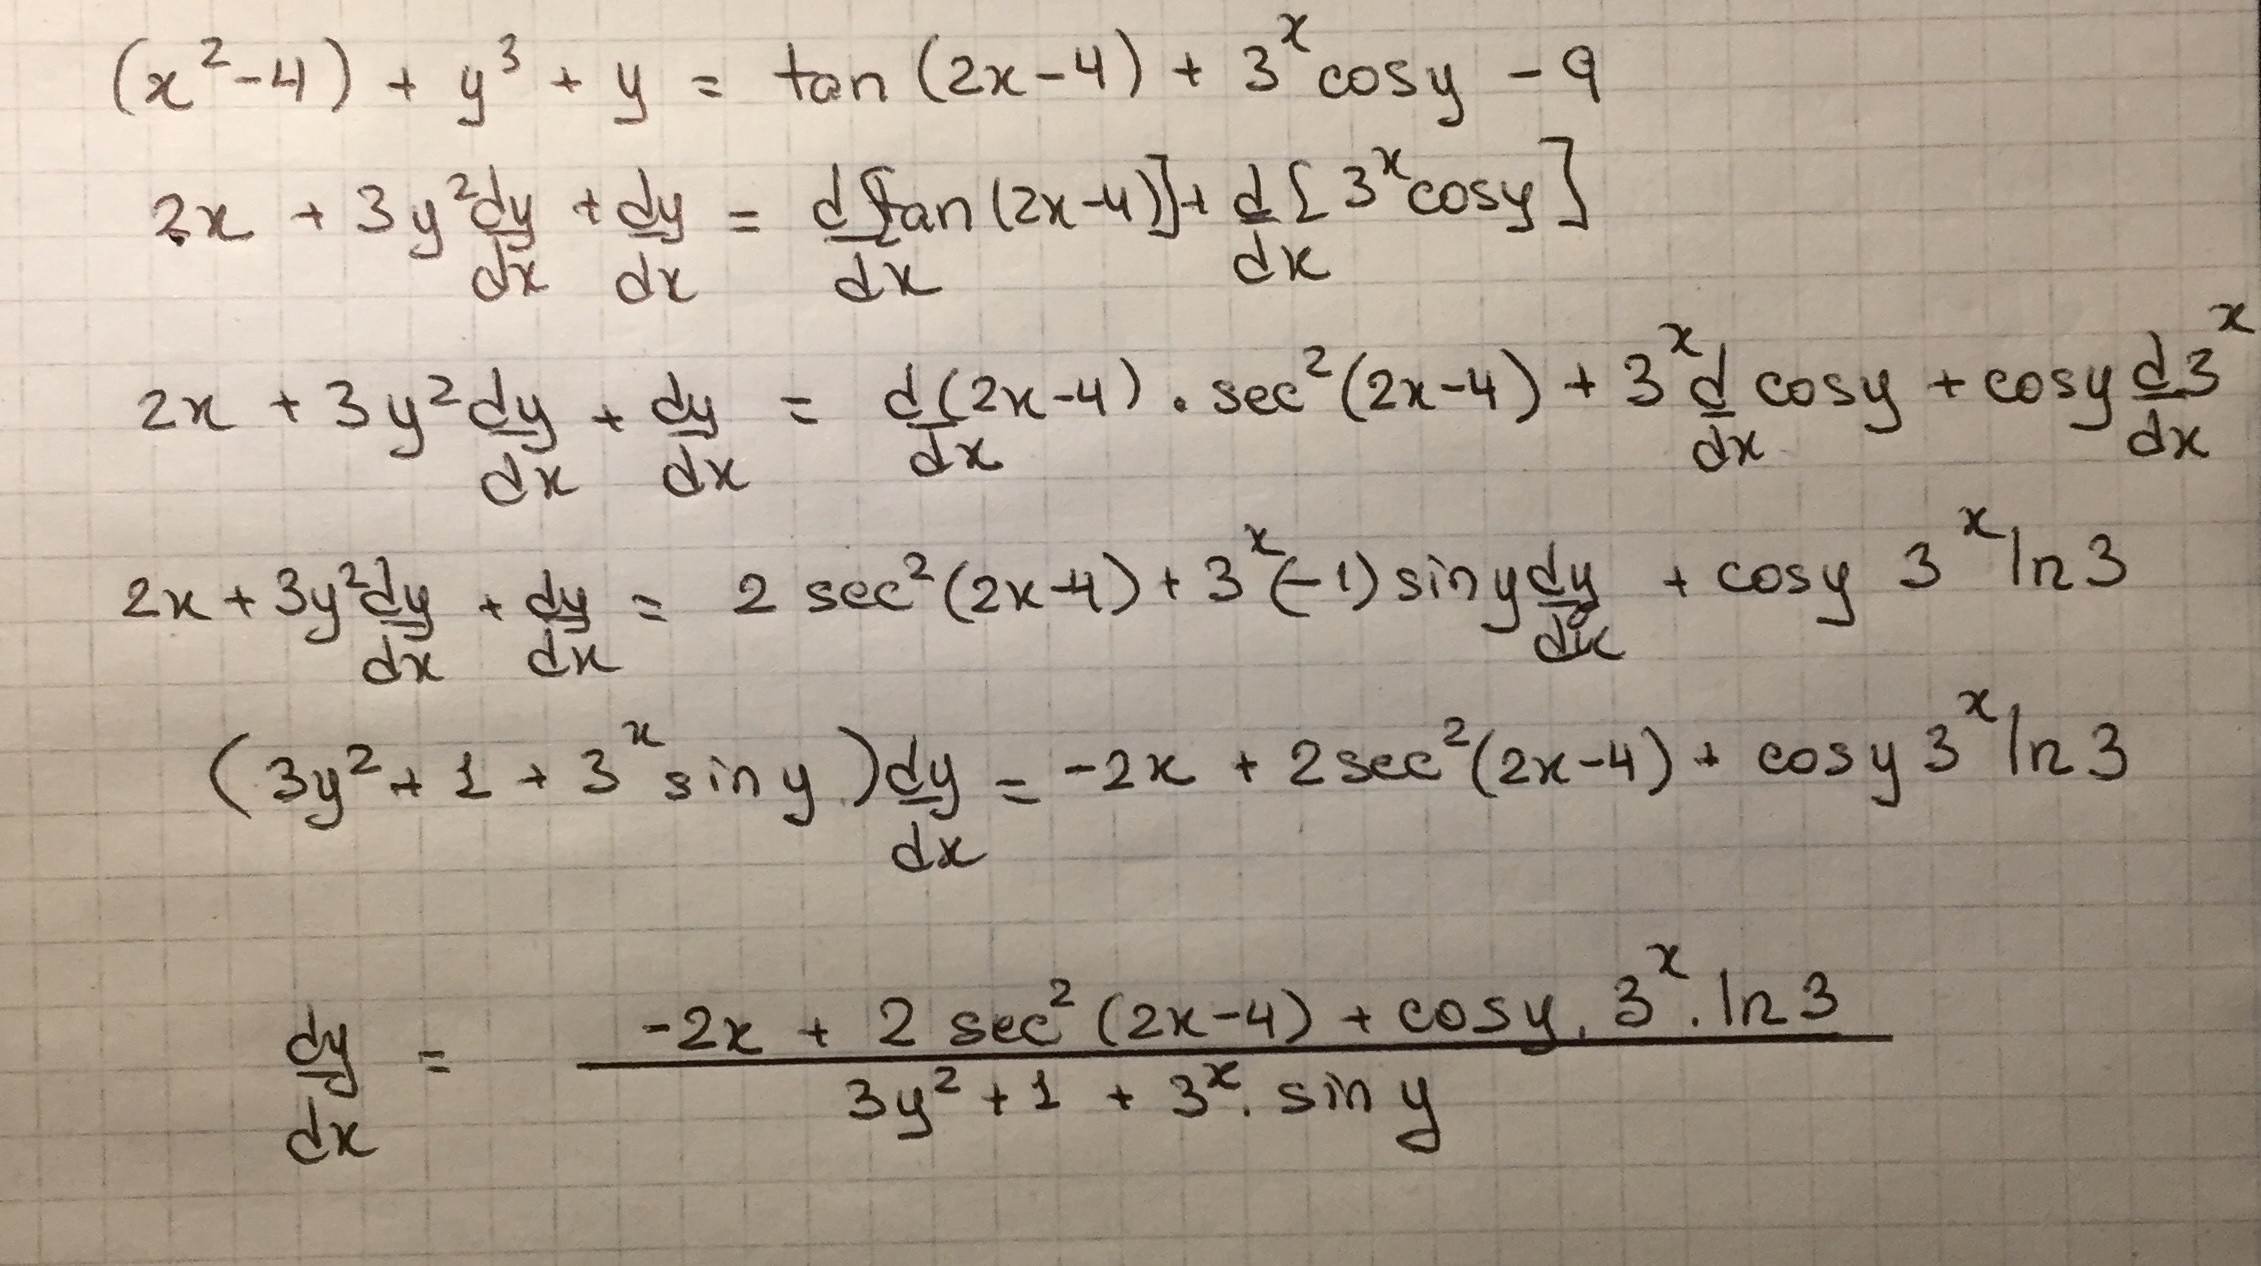 (x² - 4) + y³ + y = tan (2x - 4) + 3ˣ cosy - 9
2x + 3y² dy/dx + dy/dx = d/dx [tan (2x-4)] + d/dx [3ˣ cosy]
2x + 3y² dy/dx + dy/dx = d/dx (2x-4) . sec² (2x-4) + 3ˣ d/dx cosy + cosy d/dx 3ˣ
2x + 3y² dy/dx + dy/dx = 2 sec² (2x-4) + 3ˣ (-1) sin y dy/dx + cosy 3ˣ ln 3
(3y² + 1 + 3ˣ sin y) dy/dx = -2x + 2 sec² (2x-4) + cosy 3ˣ ln 3
dy/dx = (-2x + 2 sec² (2x-4) + cosy . 3ˣ . ln 3) / (3y² + 1 + 3ˣ . sin y)